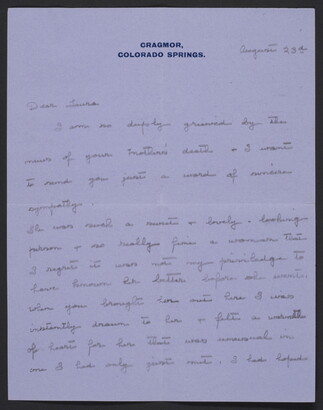 CRAGMOR,
COLORADO SPRINGS.
August 23rd
Dear Laura
I am so deeply grieved by the
news of your Mother's death & I want
to send you just a word of sincere
sympathy.
She was such a sweet & lovely-looking
person & so really fine a woman that
I regret it was not my priviledge to
have known her better before she went.
When you brought her out here I was
instantly drawn to her & felt a warmth
of heart for her that was unusual in
one I had only just met. I had hoped